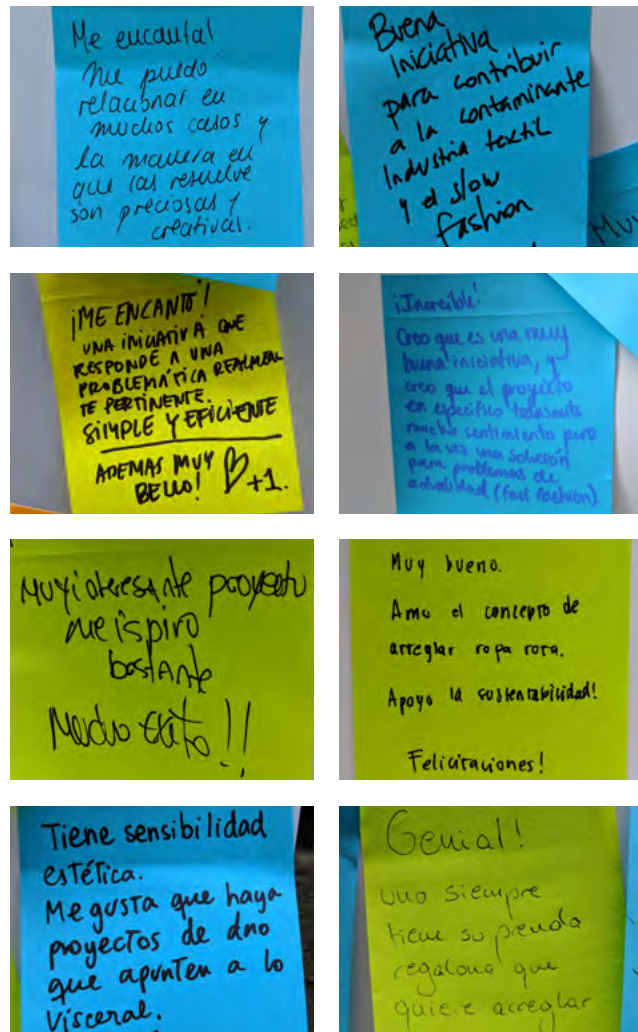 Me encanta!
Me puedo
relacionar en
muchos casos y
la manera en
que las resuelve
son preciosas y
creativas.
Buena
Iniciativa
para contribuir
a la contaminante
Industria textil
y el slow
fashion
Muy
¡ME ENCANTÓ!
UNA INICIATIVA QUE
RESPONDE A UNA
PROBLEMÁTICA REALMEN
TE PERTINENTE.
SIMPLE Y EFICIENTE
ADEMAS MUY
BELLO! ♡+1.
¡Increíble!
Creo que es una muy
buena iniciativa, y
creo que el proyecto
en específico transmite
mucho sentimiento pero
a la vez una solución
para problemas de
actualidad (fast fashion).
Muy interesante proyecto
me ispiro
bastante
Mucho exito!!
Muy bueno.
Amo el concepto de
arreglar ropa rota.
Apoyo la sustentabilidad!
Felicitaciones!
Tiene sensibilidad
estética.
Me gusta que haya
proyectos de dno
que apunten a lo
visceral.
Genial!
uno siempre
tiene su prenda
regalona que
quiere arreglar